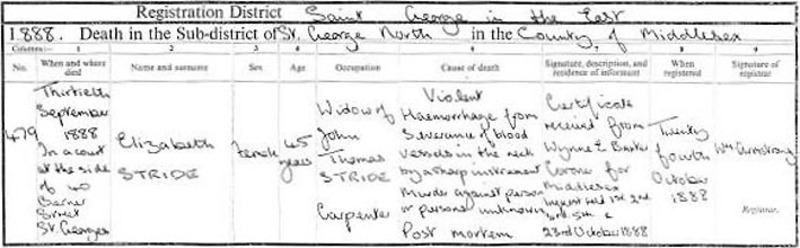 Registration District Saint George in the East
1888. Death in the Sub-district of St. George North in the County of Middlesex
Columns:- 1 2 3 4 5 6 7 8 9
No. When and where died Name and surname Sex Age Occupation Cause of death Signature, description, and residence of informant When registered Signature of registrar
479
Thirtieth
September
1888
In a court
at the side
of 40
Berner
Street
St. Georges
Elizabeth
STRIDE
Female
45
years
Widow of
John
Thomas
STRIDE
Carpenter
Violent
Haemorrhage from
Severance of blood
vessels in the neck
by a sharp instrument
Murder against person
or persons unknown
Post mortem
Certificate
received from
Wynne E. Baxter
Coroner for
Middlesex
Inquest held 1st 2nd
3rd 5th &
23rd October 1888
Twenty
fourth
October
1888
Wm Armstrong
Registrar.